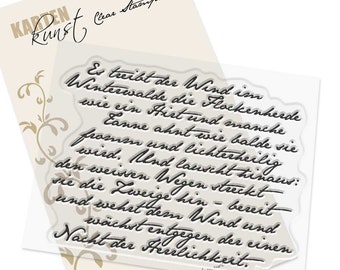 KARTEN
Kunst
Clear Stamps
Es treibt der Wind im
Winterwalde die Flockenherde
wie ein Hirt und manche
Tanne ahnt wie balde sie
fromm und lichterheilig
wird. Und lauscht hinaus:
den weissen Wegen streckt
sie die Zweige hin - bereit -
und wehrt dem Wind und
wächst entgegen der einen
Nacht der Herrlichkeit.